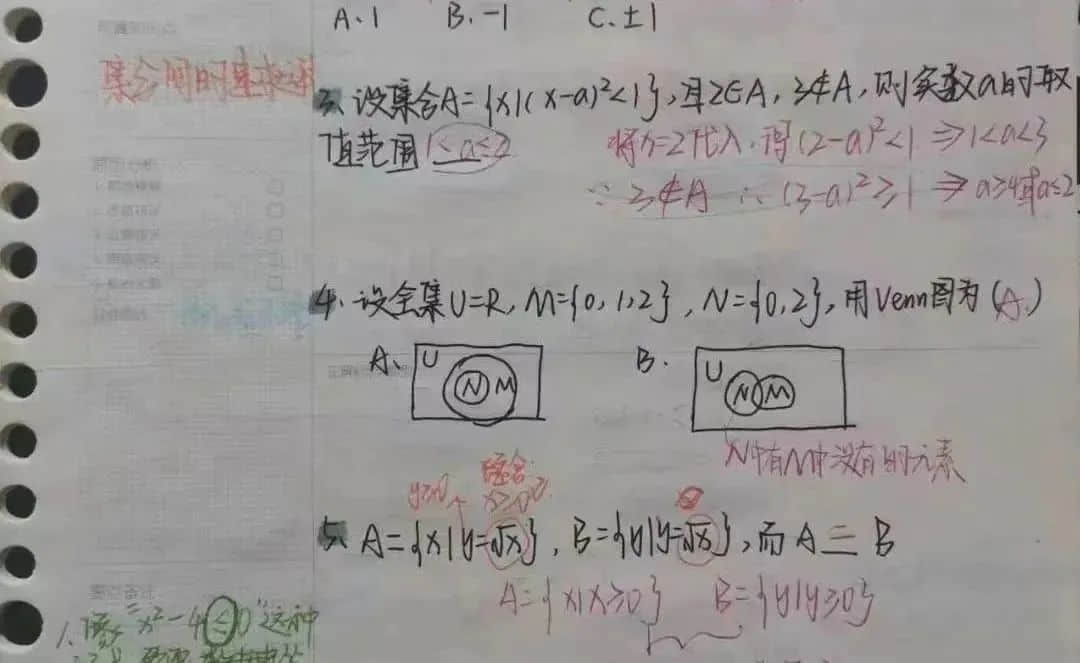 A.1 B.-1 C.±1
集合间的基本
3、设集合A={x|(x-a)²<1},且2∈A,3∉A,则实数a的取
值范围1<a≤2
将x=2代入,得(2-a)²<1⇒1<a<3
∵3∉A ∴(3-a)²≥1⇒a≥4或a≤2
4、设全集U=R,M={0,1,2},N={0,2},用Venn图为(A.)
A、 U N M B. U N M
N中有M中没有的元素
y≥0 x≥0
5、A={x|y=√x},B={y|y=√x},而A=B
A={x|x≥0} B={y|y≥0}
1、像"x²-4≤0"这种